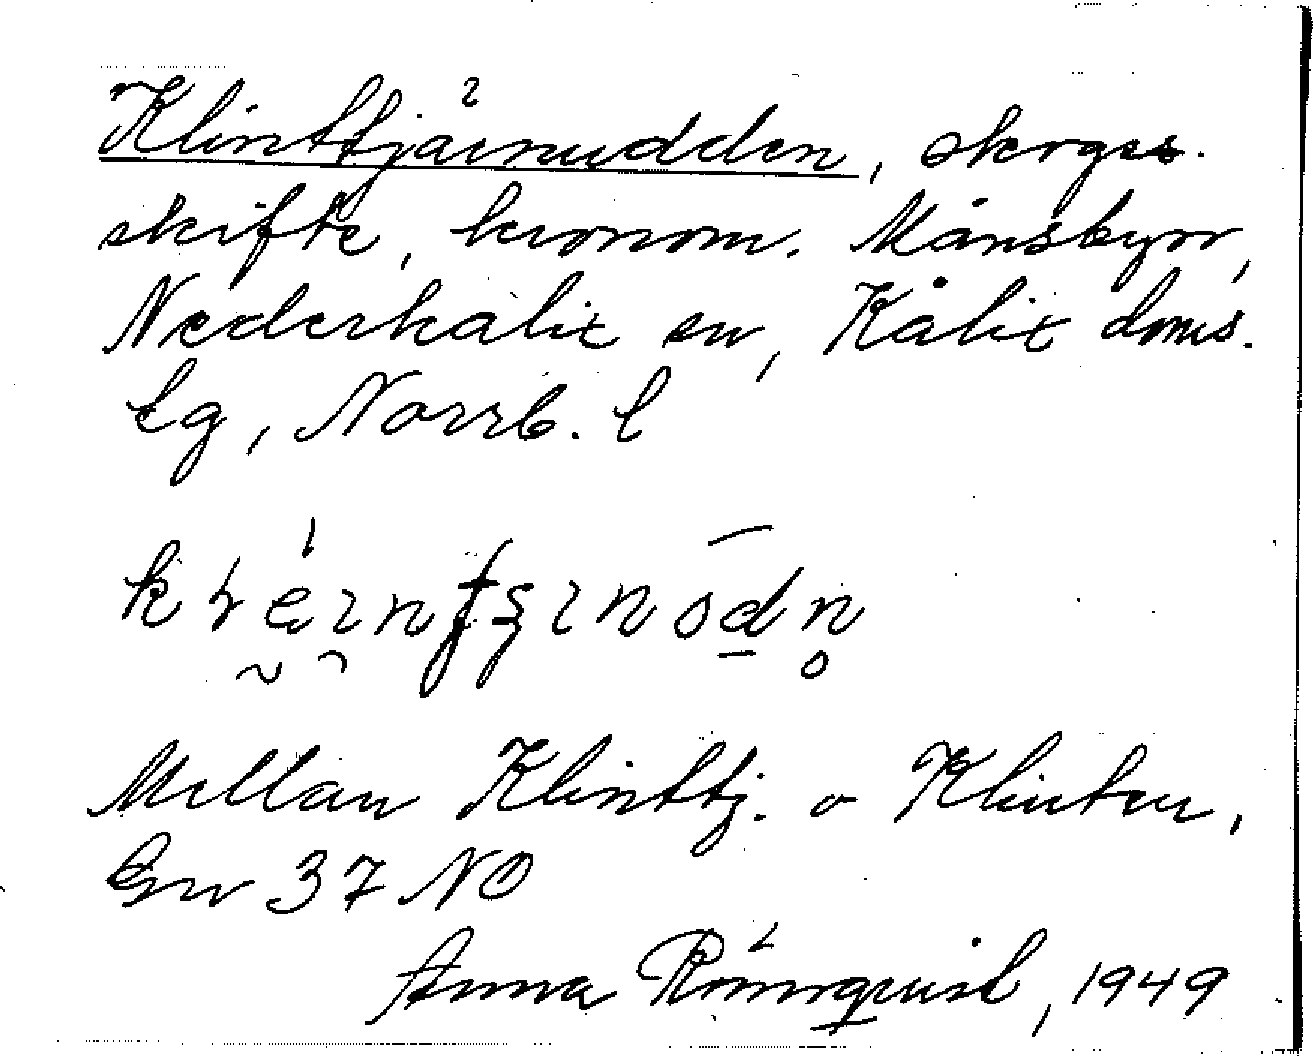 Klinttjärnudden, skogs-
skifte, kronom. Månsbyn,
Nederkalix sn, Kalix doms.
lg, Norrb. l
Mellan Klinttj. o Klinten,
Gw 37 NO
Anna Rönnquist, 1949